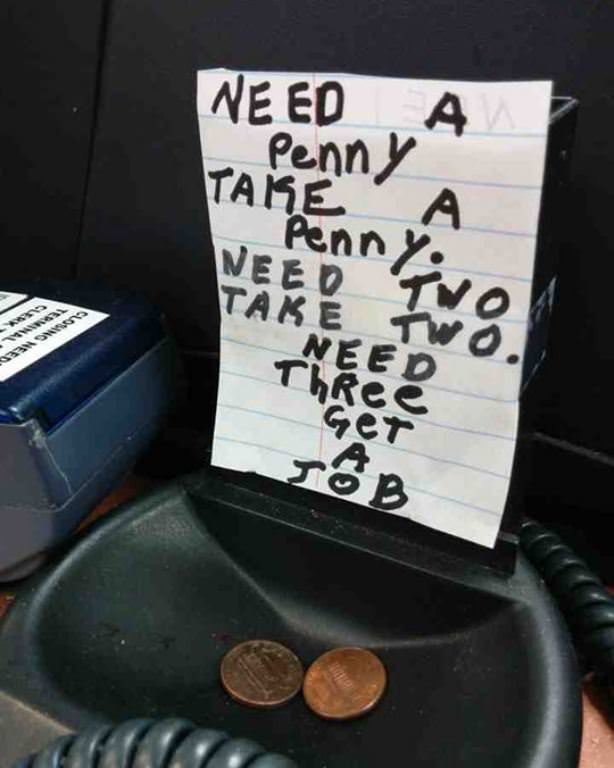 CLOSING NEED
TERMINAL
CLERK
NEED A
Penny
TAKE A
Penny.
NEED TWO
TAKE TWO.
NEED
ThRee
GeT
A
JOB